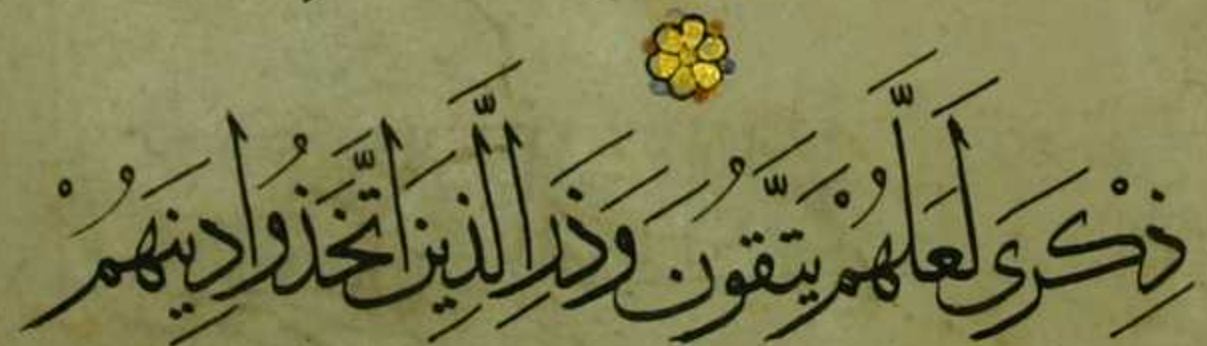 ذِكْرَى لَعَلَّهُمْ يَتَّقُونَ وَذَرِ الَّذِينَ اتَّخَذُوا دِينَهُمْ